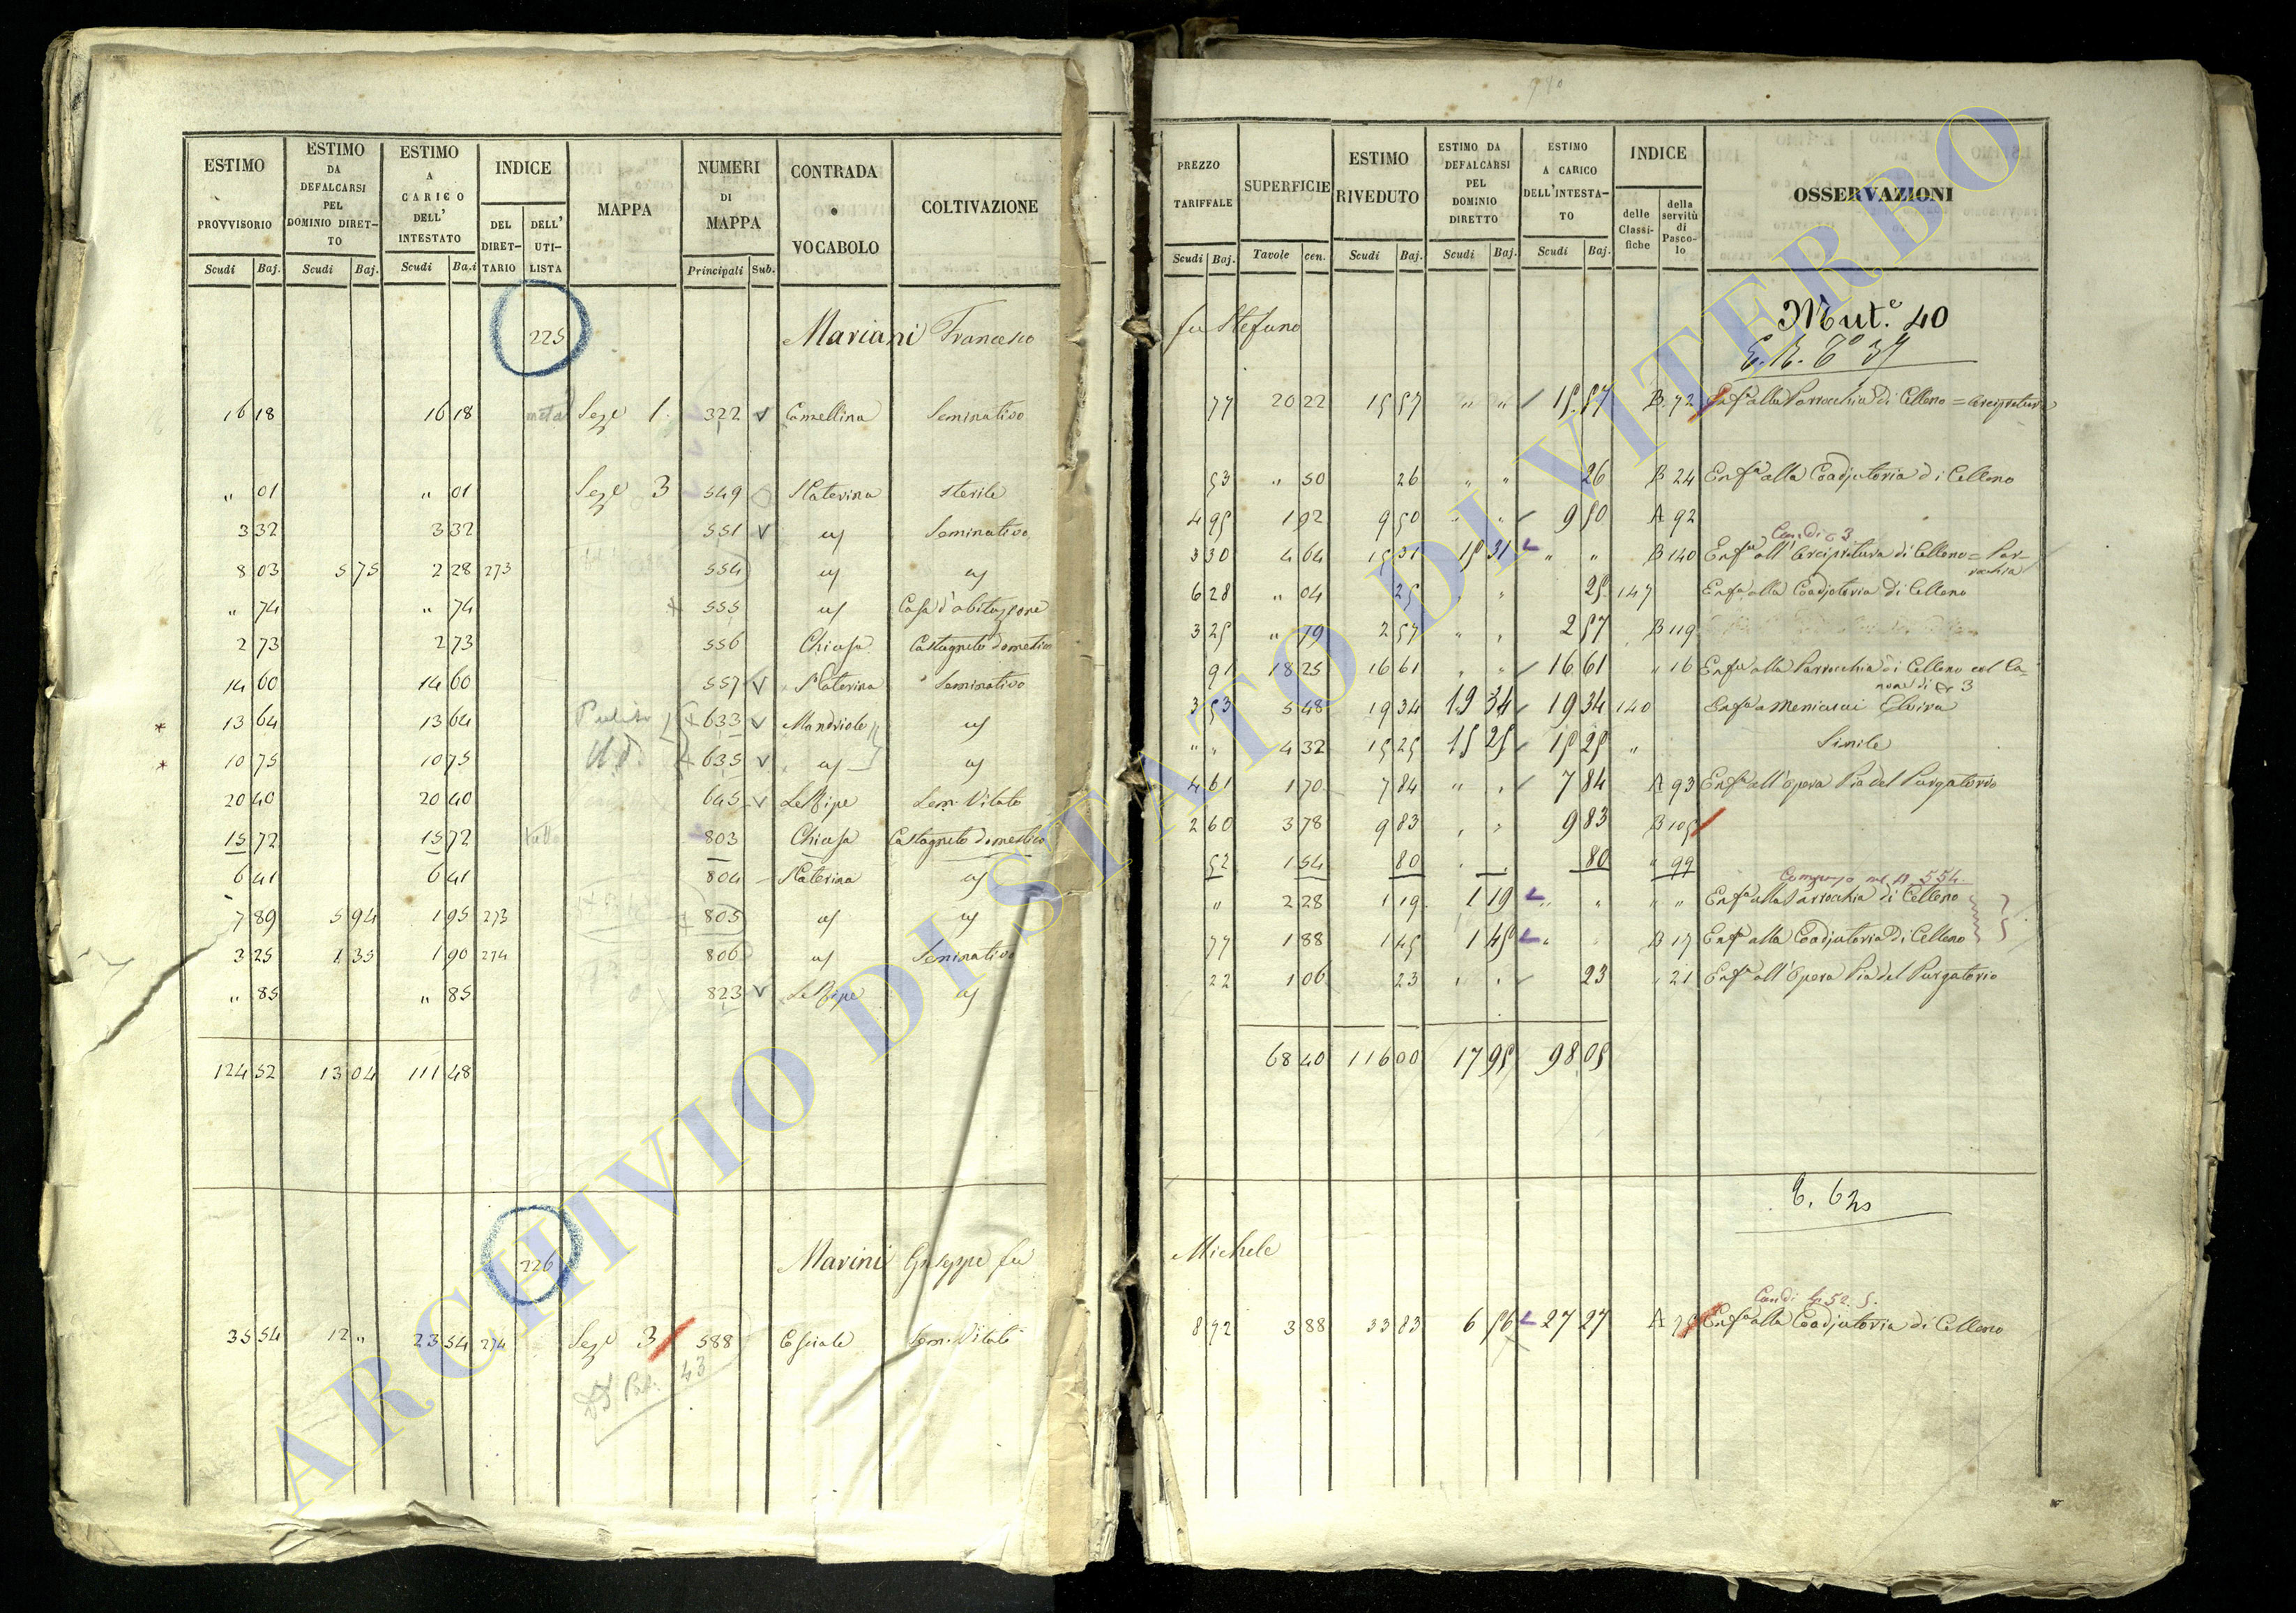 ESTIMO PROVVISORIO | ESTIMO DA DEFALCARSI PEL DOMINIO DIRETTO | ESTIMO A CARICO DELL' INTESTATO | INDICE | MAPPA | NUMERI DI MAPPA | CONTRADA o VOCABOLO | COLTIVAZIONE
Scudi Baj. | Scudi Baj. | Scudi Ba.i | DEL DIRETTARIO | DELL' UTILISTA | Principali Sub.
225 Mariani Francesco
16 18 | 16 18 | metà | Sez.e 1. | 322 v | Camellina | Seminativo
" 01 | " 01 | Sez.e 3 | 549 | S Caterina | sterile
3 32 | 3 32 | 551 v | " | Seminativo
8 03 | 5 75 | 2 28 | 273 | 554
" 74 | " 74 | 555 | Casa d'abitazione
2 73 | 2 73 | 556 | Chiusa | Castagneto domestico
14 60 | 14 60 | 557 v | S Caterina | Seminativo
* 13 64 | 13 64 | 633 v | Mandriole
* 10 75 | 10 75 | 635 v
20 40 | 20 40 | 645 v | Le Ripe | Sem. Vitato
15 72 | 15 72 | 803 | Chiusa | Castagneto domestico
6 41 | 6 41 | 804 | S Caterina
7 89 | 5 94 | 1 95 | 273 | 805
3 25 | 1 35 | 1 90 | 274 | 806 | Seminativo
" 85 | " 85 | 823 v | Le Ripe
124 52 | 13 04 | 111 48
226 Marini Giuseppe fu
35 54 | 12 " | 23 54 | 274 | Sez.e 3 | 588 | Sem. Vitato
43
PREZZO TARIFFALE | SUPERFICIE | ESTIMO RIVEDUTO | ESTIMO DA DEFALCARSI PEL DOMINIO DIRETTO | ESTIMO A CARICO DELL'INTESTATO | INDICE | OSSERVAZIONI
Scudi Baj. | Tavole cen. | Scudi Baj. | Scudi Baj. | Scudi Baj. | delle Classifiche | della servitù di Pascolo
fu Stefano
Mut.e 40
77 | 20 22 | 15 57 | " " | 15 57 | B 72 | Enf.a alla Parrocchia di Celleno = Arcipretura
53 | " 50 | 26 | " " | 26 | B 24 | Enf.a alla Coadjutoria di Celleno
4 95 | 1 92 | 9 50 | " " | 9 50 | A 92
3 30 | 4 64 | 15 31 | 15 31 | " " | B 140 | Enf.a all'Arcipretura di Celleno = Parrocchia
6 28 | " 04 | 25 | " " | 25 | 147 | Enf.a alla Coadjutoria di Celleno
3 25 | " 79 | 2 57 | " " | 2 57 | B 119
91 | 18 25 | 16 61 | " " | 16 61 | " 16 | Enf.a alla Parrocchia di Celleno col Canone di 3
3 53 | 5 48 | 19 34 | 19 34 | 19 34 | 140 | Enf.a a Menicucci Elvira
" " | 4 32 | 15 25 | 15 25 | 15 25 | " | Simile
4 61 | 1 70 | 7 84 | " " | 7 84 | A 93 | Enf.a all'Opera Pia del Purgatorio
2 60 | 3 78 | 9 83 | " " | 9 83 | B 105
52 | 1 54 | 80 | 80 | " 99
Compreso nel N 554
" | 2 28 | 1 19 | 1 19 | " " | " " | Enf.a alla Parrocchia di Celleno
77 | 1 88 | 1 45 | 1 45 | " | B 17 | Enf.a alla Coadjutoria di Celleno
22 | 1 06 | 23 | " " | 23 | " 21 | Enf.a all'Opera Pia del Purgatorio
68 40 | 116 00 | 17 95 | 98 05
Michele
8 72 | 3 88 | 33 83 | 6 56 | 27 27 | A | Enf.a alla Coadjutoria di Celleno
ARCHIVIO DI STATO DI VITERBO